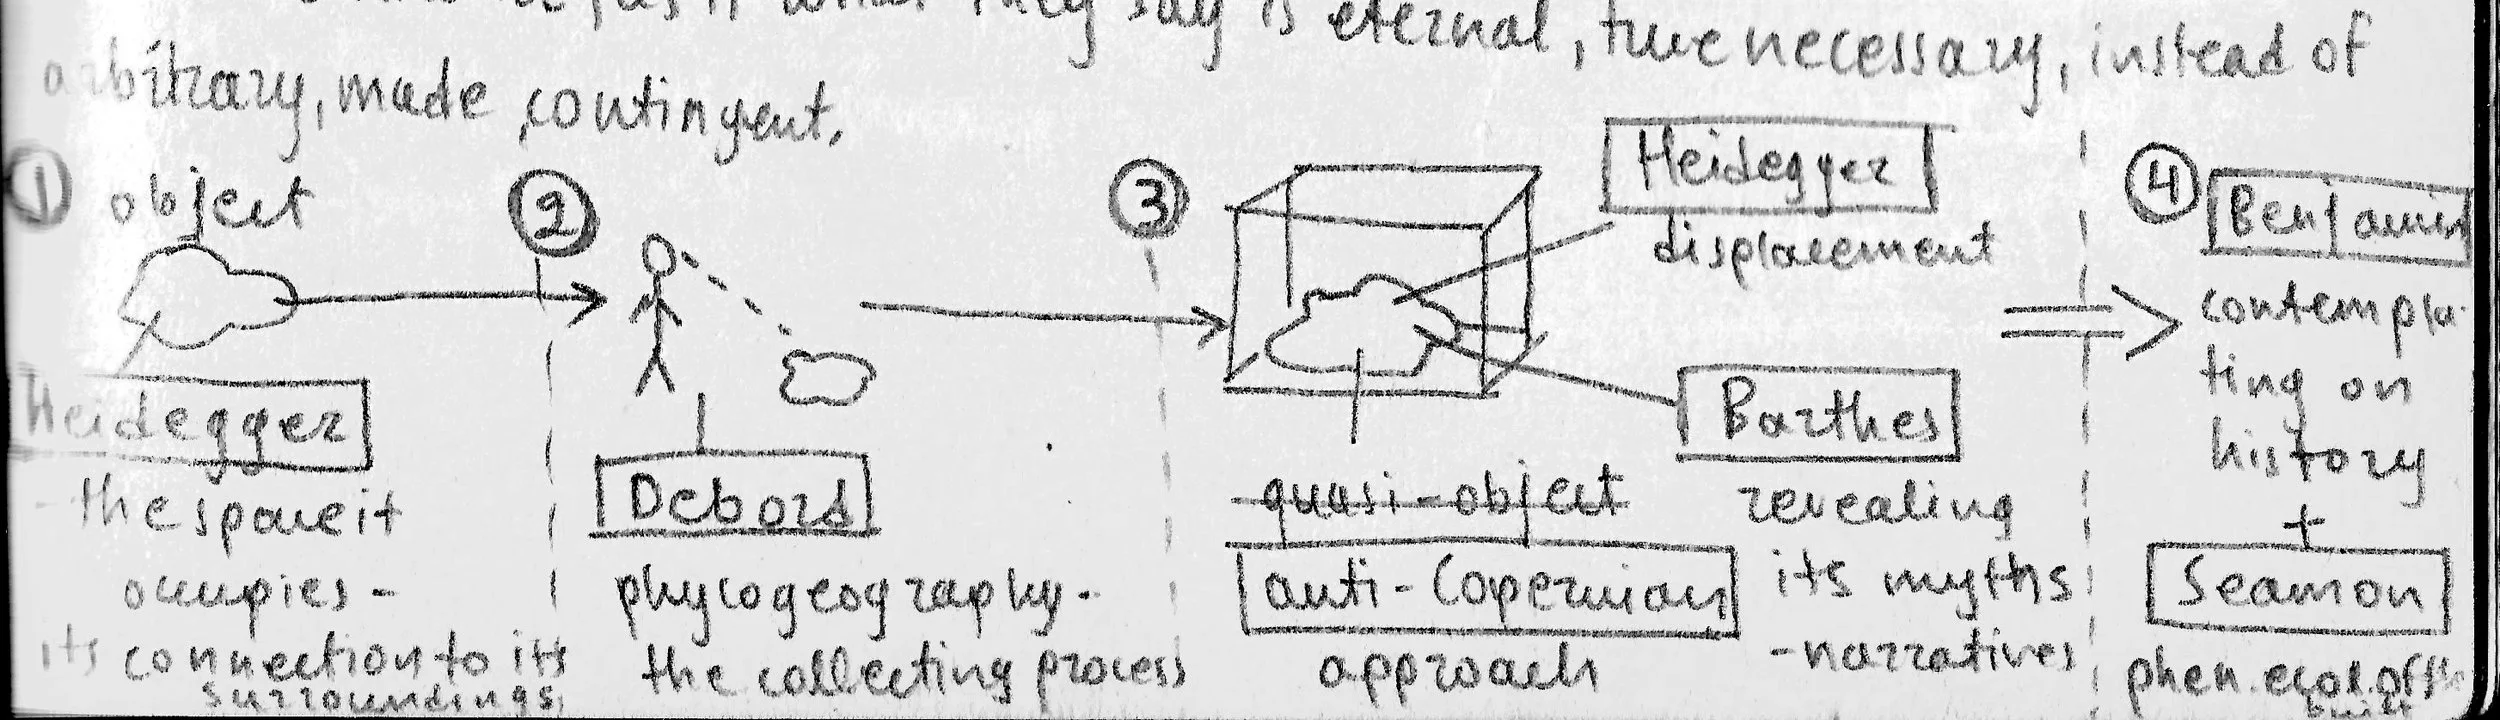 what they say is eternal, true necessary, instead of
arbitrary, made, contingent.
① object
Heidegger
- the space it
occupies -
its connection to its
surroundings
②
Debord
phycogeography -
the collecting process
③
Heidegger
displacement
Barthes
revealing
its myths
- narratives
quasi-object
anti-Copernian
approach
④ Benjamin
contempla-
ting on
history
+
Seamon
phen. ecol. of the
built